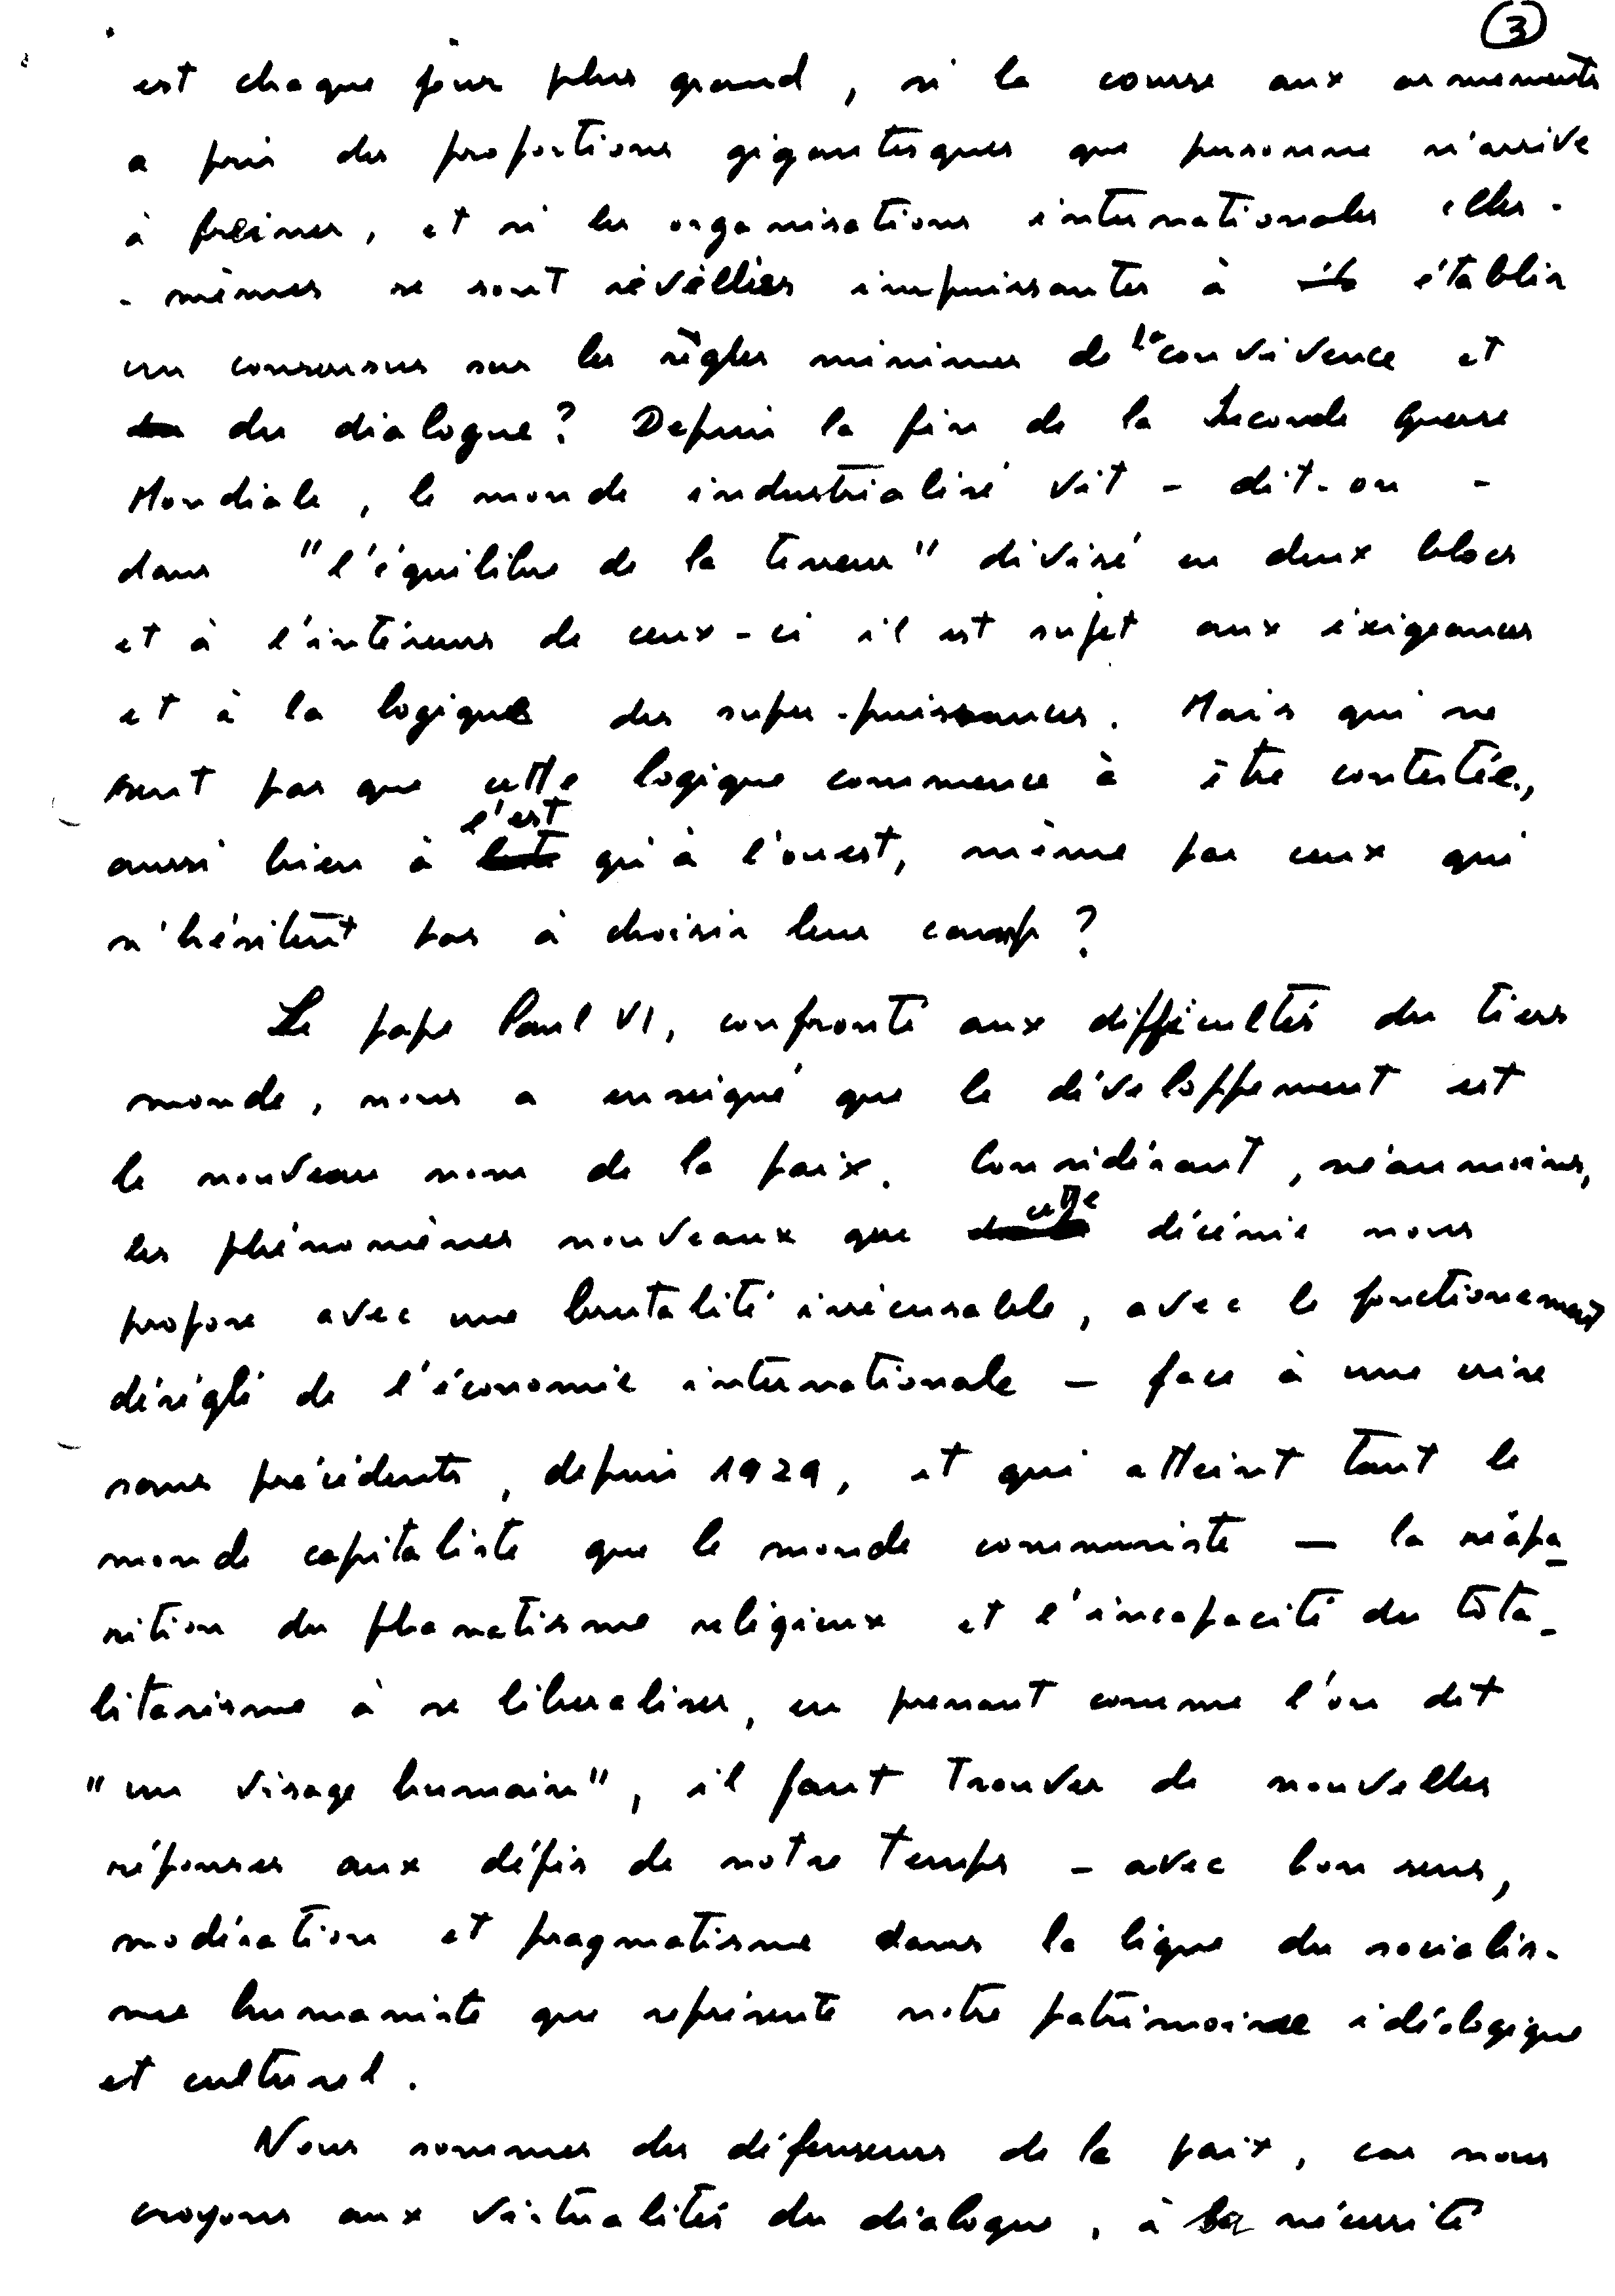 3
est chaque jour plus grand, si la course aux armements
a pris des proportions gigantesques que personne n'arrive
à freiner, et si les organisations internationales elles-
-mêmes se sont révéllées impuissantes à établir
un consensus sur les règles minimes de la convivence et
du dialogue? Depuis la fin de la Seconde Guerre
Mondiale, le monde industrialisé vit - dit-on -
dans "l'équilibre de la terreur" divisé en deux blocs
et à l'intérieur de ceux-ci il est sujet aux éxigeances
et à la logique des super-puissances. Mais qui ne
sent pas que cette logique commence à être contestée,
aussi bien à l'est qu'à l'ouest, même par ceux qui
n'hésitent pas à choisir leur camp?
Le pape Paul VI, confronté aux difficultés du tiers
monde, nous a enseigné que le développement est
le nouveau nom de la paix. Considérant, néanmoins,
les phénomènes nouveaux que cette décénie nous
propose avec une brutalité irrécusable, avec le fonctionement
déréglé de l'économie internationale — face à une crise
sans précédents, depuis 1929, et qui atteint tant le
monde capitaliste que le monde communiste — la réapa-
rition du phanatisme religieux et l'incapacité du tota-
litarisme à se liberaliser, en prenant comme l'on dit
"un visage humain", il faut trouver de nouvelles
réponses aux défis de notre temps - avec bon sens,
modération et pragmatisme dans la ligne du socialis-
me humaniste que représente notre patrimoine idéologique
et culturel.
Nous sommes des défenseurs de la paix, car nous
croyons aux virtualités du dialogue, à la nécessité